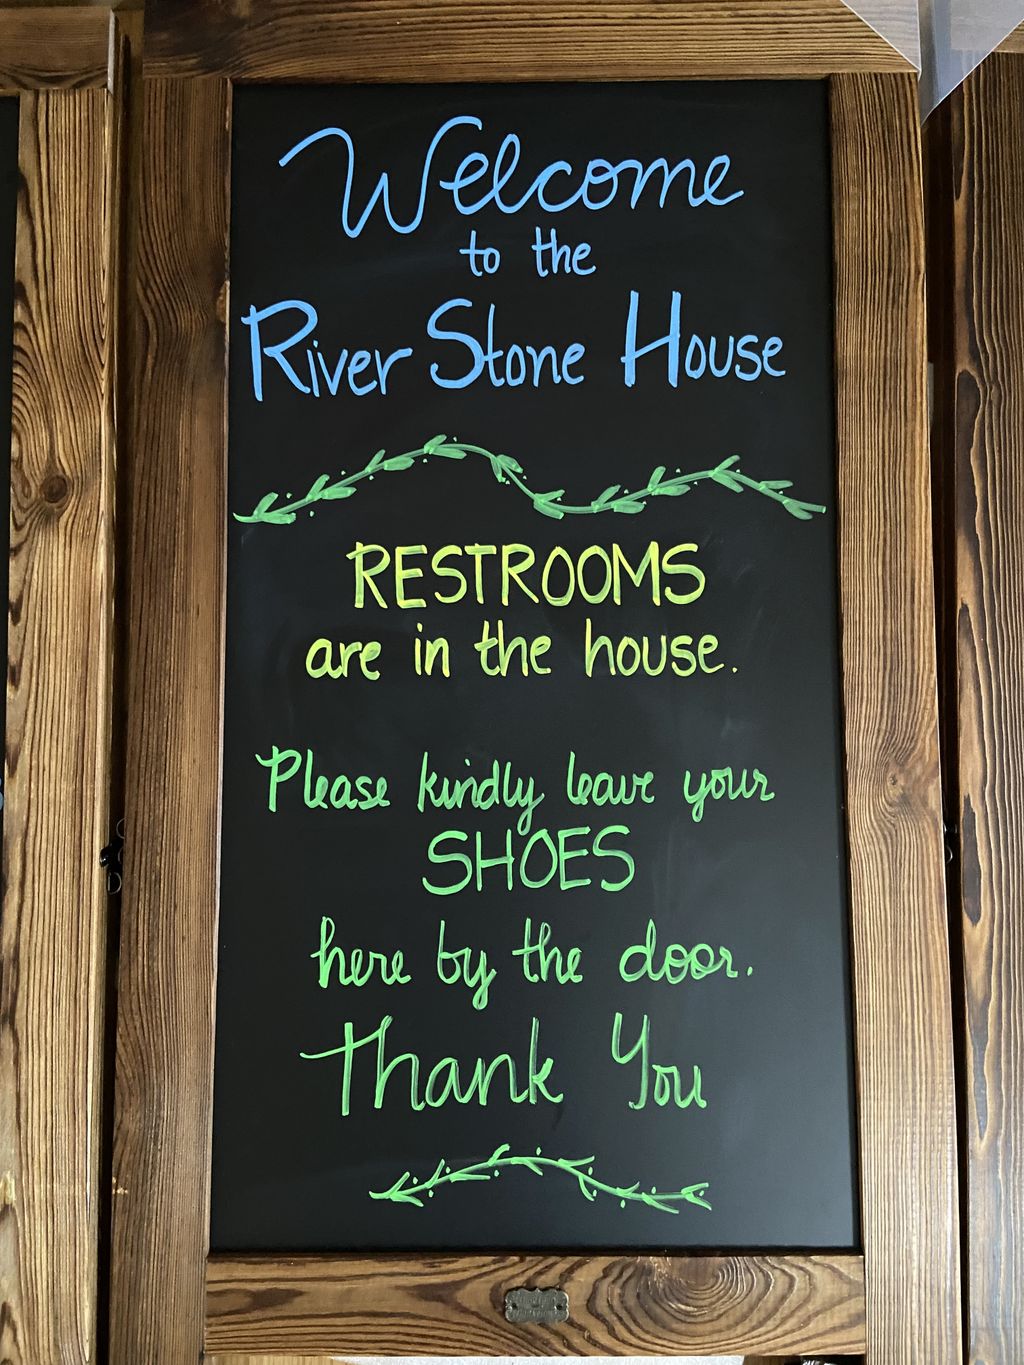 Welcome
to the
River Stone House
RESTROOMS
are in the house.
Please kindly leave your
SHOES
here by the door.
Thank You